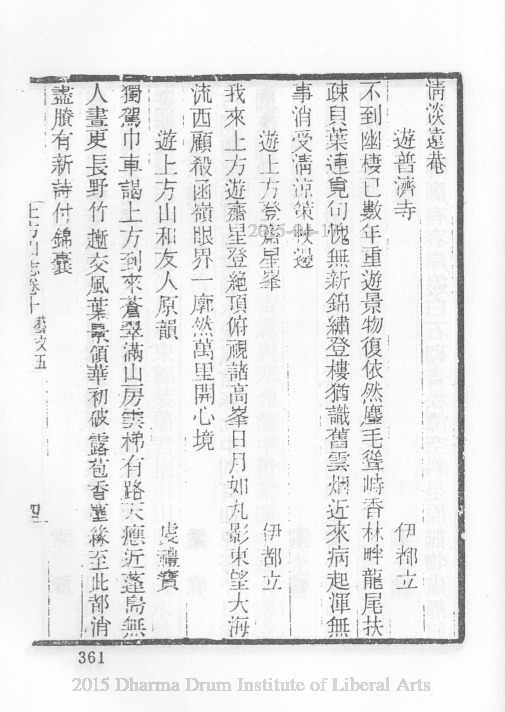 清淡遠菴
遊普濟寺　伊都立
不到幽棲已數年重遊景物復依然麈毛聳峙香林畔龍尾扶
疎貝葉連覓句愧無新錦繡登樓猶識舊雲烟近來病起渾無
事消受清涼策蹇還
遊上方登齋星峯　伊都立
我來上方遊齋星登絕頂俯視諸高峯日月如丸影東望大海
流西顧殺函嶺眼界一廓然萬里開心境
遊上方山和友人原韻　虔禮寶
獨駕巾車謁上方到來蒼翠滿山房雲梯有路天應近蓬島無
人晝更長野竹逝交風葉暴領華初破露苞香塵緣至此都消
盡賸有新詩付錦囊
上方山志卷十 藝文五　四二
361
2015 Dharma Drum Institute of Liberal Arts